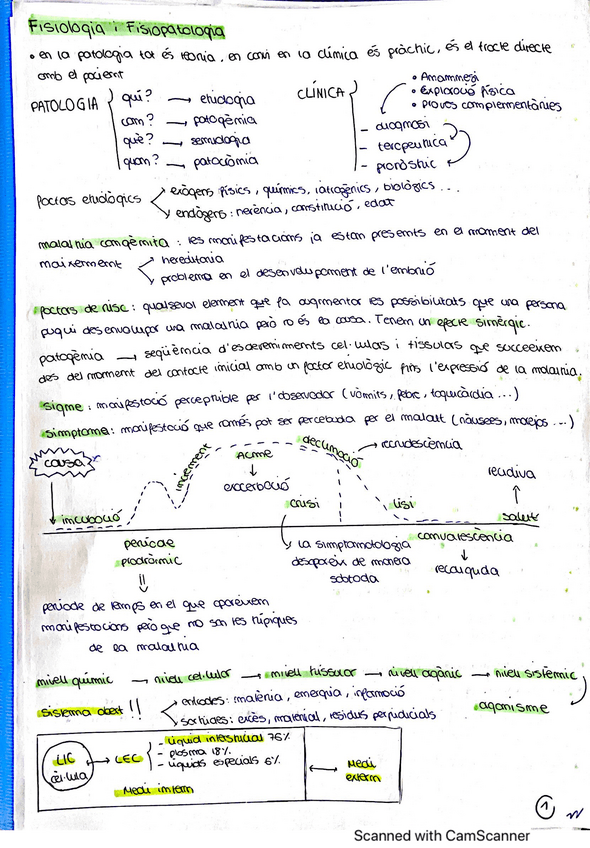 Fisiologia i Fisiopatologia
• en la patologia tot és teoria, en canvi en la clínica és pràctic, és el tracte directe
amb el pacient
PATOLOGIA
qui? → etiologia
com? → patogènia
què? → semiologia
quan? → patocrònia
CLÍNICA
• Anamnesi
• Exploració física
• Proves complementàries
- diagnosi
- terapèutica
- pronòstic
factors etiològics
exògens: físics, químics, iatrogènics, biològics ...
endògens: herència, constitució, edat
malaltia congènita: les manifestacions ja estan presents en el moment del
naixement
hereditària
problema en el desenvolupament de l'embrió
factors de risc: qualsevol element que fa augmentar les possibilitats que una persona
pugui desenvolupar una malaltia però no és la causa. Tenem un efecte sinèrgic.
patogènia → seqüència d'esdeveniments cel·lulars i tissulars que succeeixen
des del moment del contacte inicial amb un factor etiològic fins l'expressió de la malaltia.
signe: manifestació perceptible per l'observador (vòmits, febre, taquicàrdia ...)
símptoma: manifestació que només pot ser percebuda per el malalt (nàusees, marejos ...)
causa
increment
Acme
declinació → recrudescència
exacerbació
recidiva
incubació
crisi
lisi
salut
període
prodròmic
la simptomatologia
desapareix de manera
sobtada
convalescència
recaiguda
període de temps en el que apareixen
manifestacions però que no son les típiques
de la malaltia
nivell químic → nivell cel·lular → nivell tissular → nivell orgànic → nivell sistèmic
organisme
sistema obert !!
entrades: matèria, energia, informació
sortides: excés, material, residus perjudicials
LIC
cèl·lula
LEC
- líquid intersticial 76%
- plasma 18%
- líquids especials 6%
Medi intern
Medi
extern
1
Scanned with CamScanner